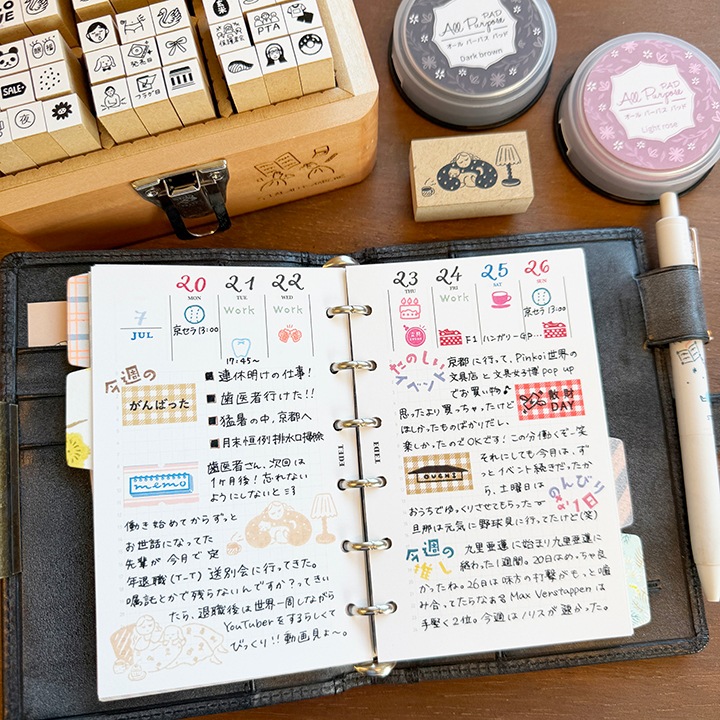 OVE
SALE+
夜
発売日
フラグ日
保護者会
PTA
All Purpose
PAD
オール パーパス パッド
Dark brown
All Purpose
PAD
オール パーパス パッド
Light rose
7
JUL
20
MON
京セラ 13:00
21
TUE
Work
17:45~
22
WED
Work
今週の
がんばった
■連休明けの仕事!
■歯医者行けた!!
■猛暑の中、京都へ
■月末恒例排水口掃除
memo
歯医者さん、次回は
1ヶ月後!忘れない
ようにしないと
働き始めてからずっと
お世話になってた
先輩が今月で定
年退職(T-T) 送別会に行ってきた。
嘱託とかで残らないんですか?ってきい
たら、退職後は世界一周しながら
YouTuberをするらしくて
びっくり!!動画見よ~。
TEPI
23
THU
24
FRI
Work
F1 ハンガリーGP...
25
SAT
26
SUN
京セラ 13:00
たのしい
イベント
京都に行って、Pinkoi世界の
文具店と文具女子博pop up
でお買い物♪
思ったより買っちゃったけど
ほしかったものばかりだし、
楽しかったのでOKです!この分働くぞー笑
散財
DAY
それにしても今月は、ず
っとイベント続きだったか
ら、土曜日は
おうちでゆっくりさせてもらった
のんびり
な1日
旦那は元気に野球見に行ってたけど(笑)
今週の
推し
九里亜蓮に始まり九里亜蓮に
終わった1週間。20日はめっちゃ良
かったね。26日は味方の打撃がもっと噛
み合ってたらなぁ Max Verstappenは
手堅く2位。今週はノリスが速かった。
TEPI